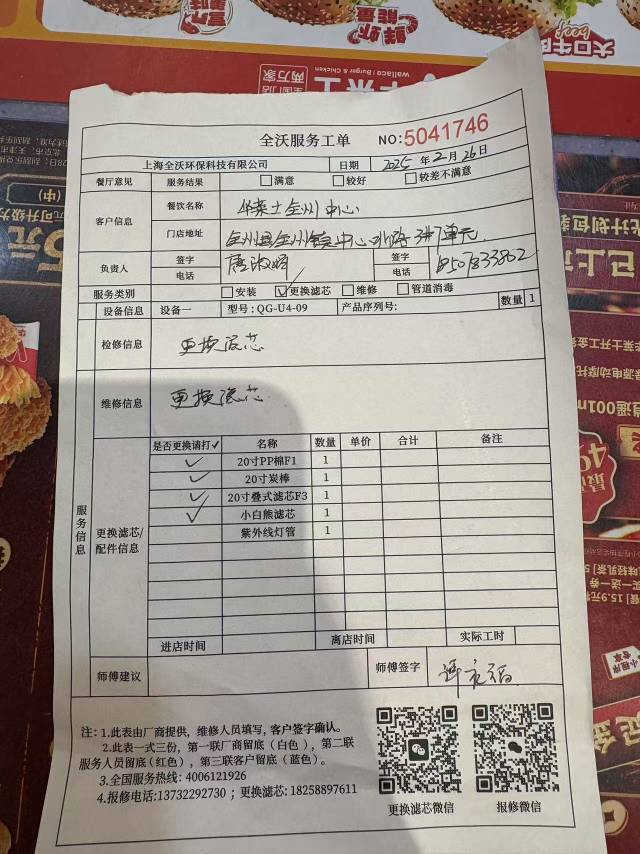 鲜虾
能量
大口牛肉
beef
全国门店
两万家
华莱士
Wallace | Burger & Chicken
全沃服务工单 NO:5041746
上海全沃环保科技有限公司 日期 2025年2月26日
餐厅意见 服务结果 满意 较好 较差不满意
客户信息 餐饮名称 华莱士全州中心
门店地址 全州县全州镇中心北路3#7单元
负责人 签字 签字
电话 电话
服务类别 安装 更换滤芯 维修 管道消毒
设备信息 设备一 型号:QG-U4-09 产品序列号: 数量 1
检修信息 更换滤芯
维修信息 更换滤芯
服务信息
更换滤芯/配件信息
是否更换请打✓ 名称 数量 单价 合计 备注
✓ 20寸PP棉F1 1
✓ 20寸炭棒 1
✓ 20寸叠式滤芯F3 1
✓ 小白熊滤芯 1
紫外线灯管 1
进店时间 离店时间 实际工时
师傅建议 师傅签字
注:1.此表由厂商提供,维修人员填写,客户签字确认。
2.此表一式三份,第一联厂商留底(白色),第二联
服务人员留底(红色),第三联客户留底(蓝色)。
3.全国服务热线:4006121926
4.报修电话:13732292730;更换滤芯:18258897611
更换滤芯微信 报修微信